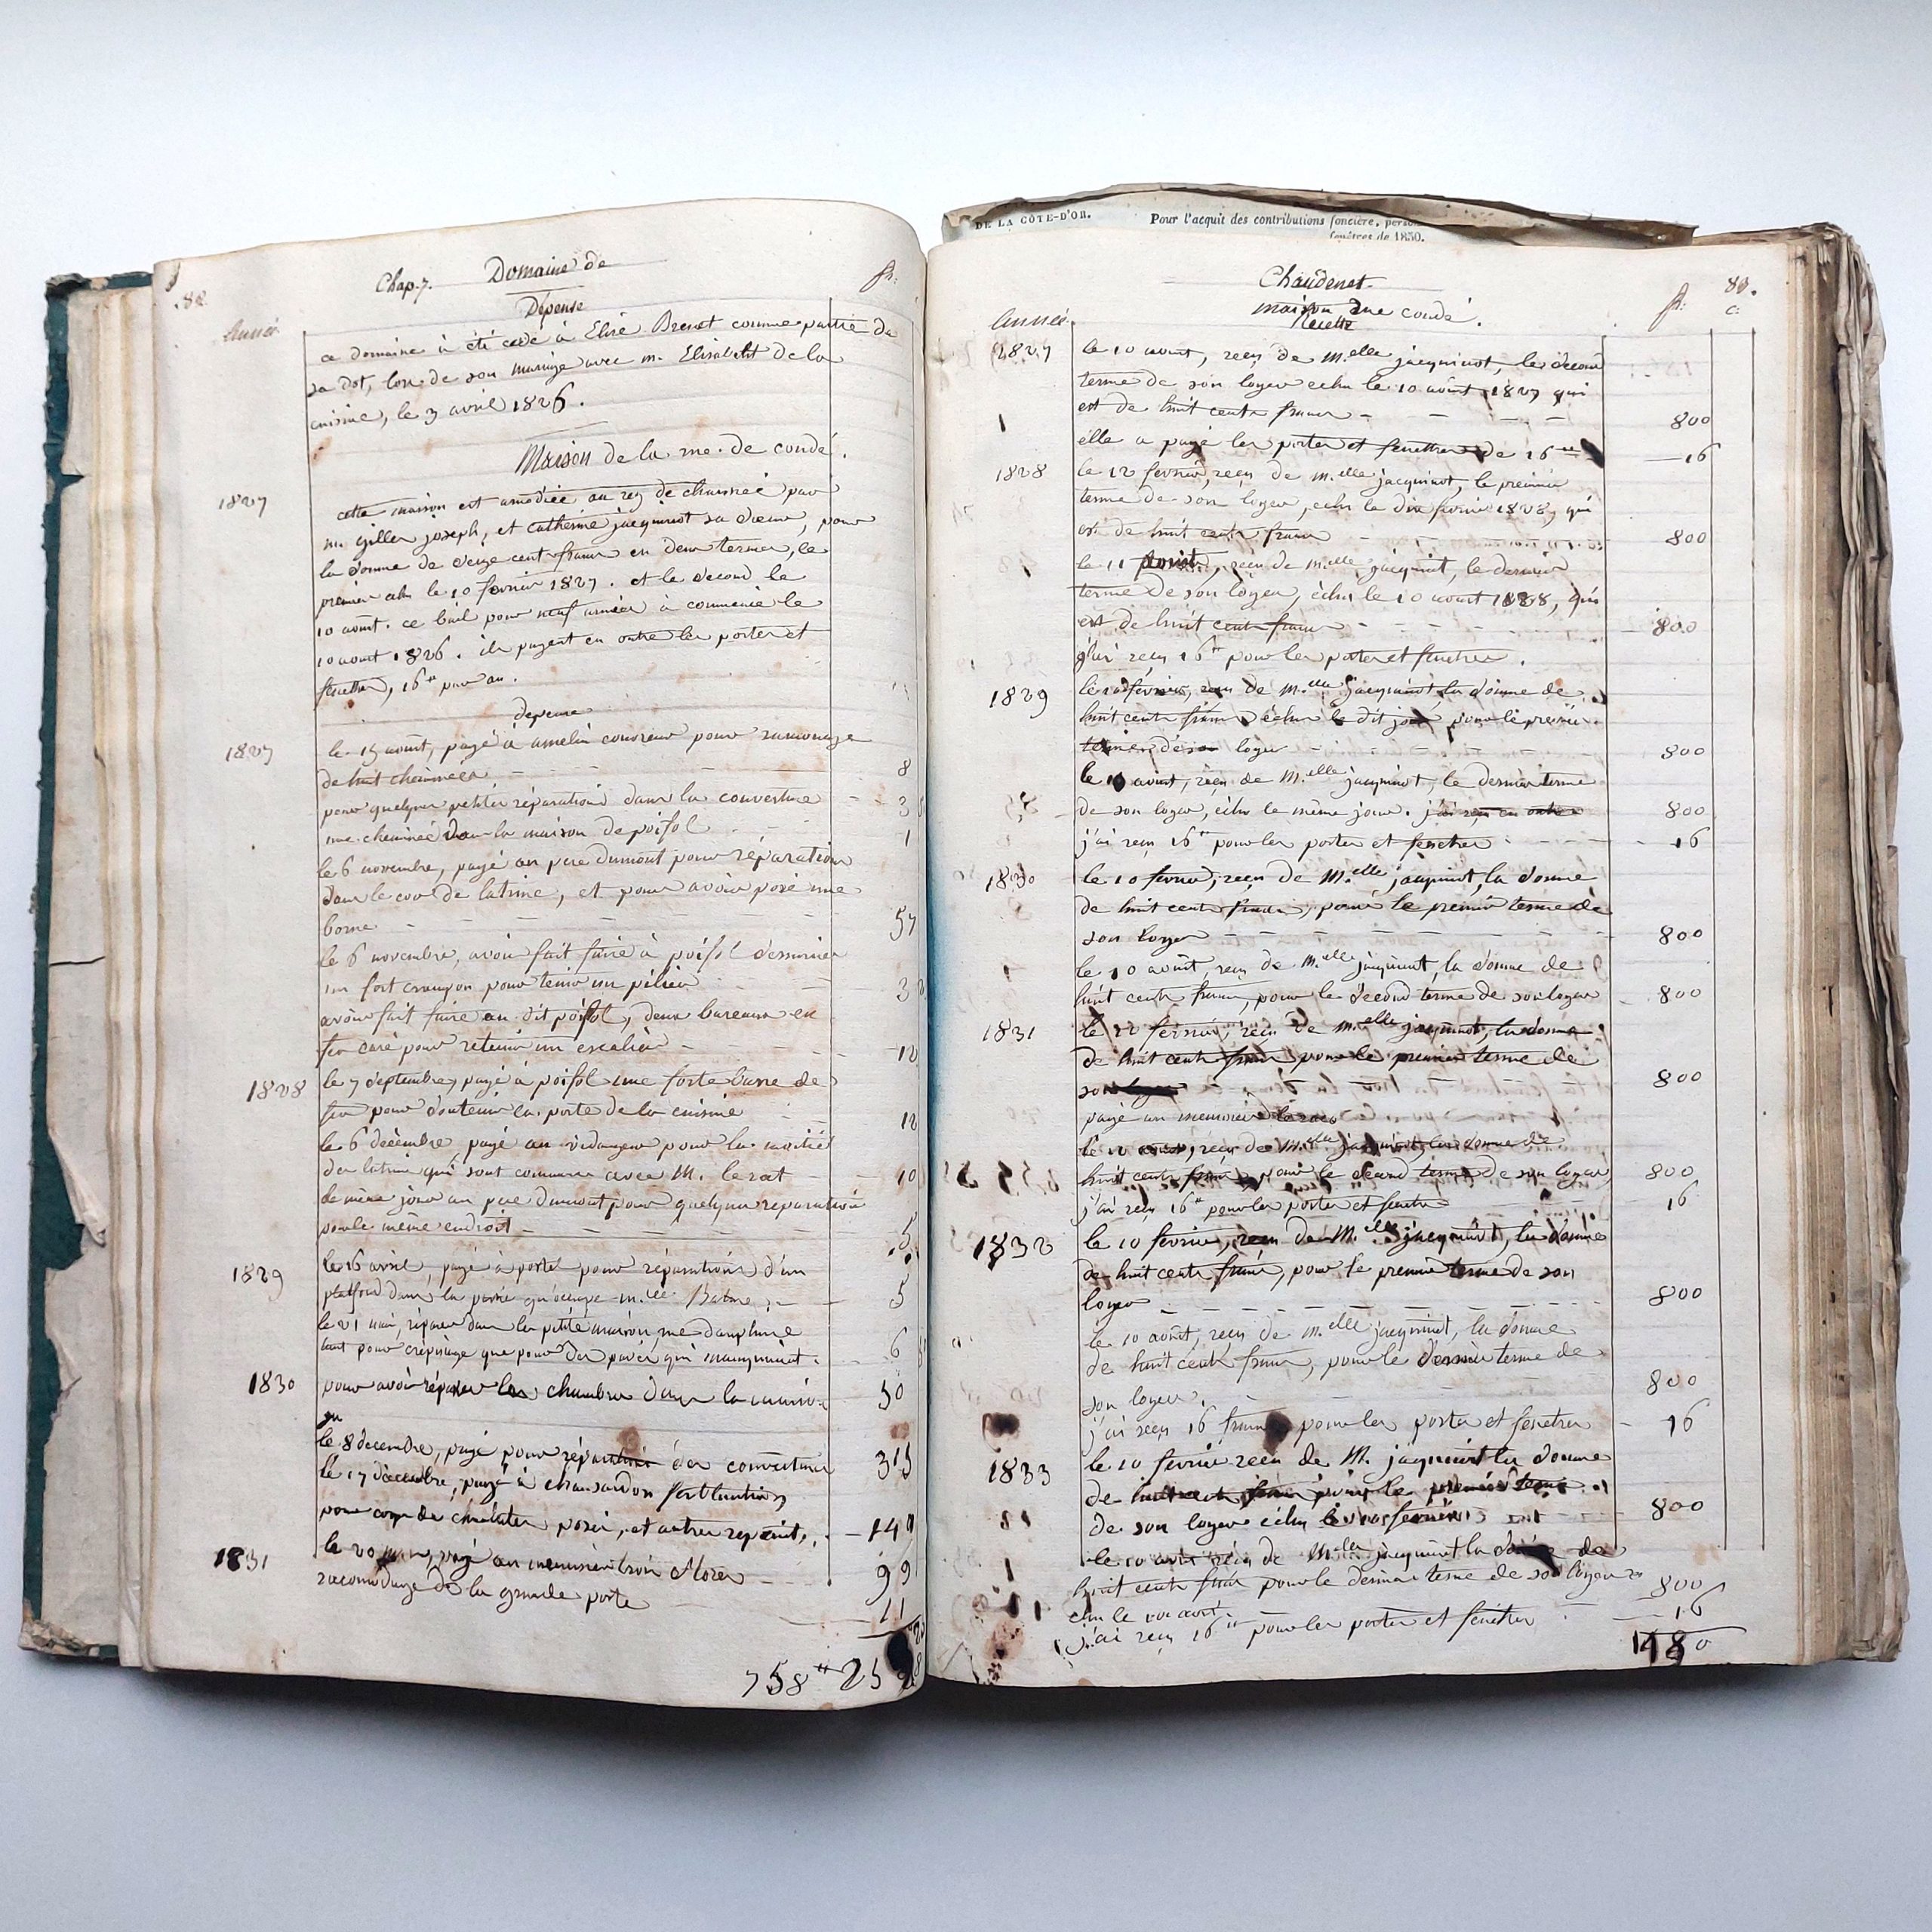 82.
Chap. 7. Domaine de
fr:
Dépense
année
ce domaine à été cedé à Elise Brenet comme partie de
sa dot, lors de son mariage avec m. Elisabeth de la
cuisine, le 3 avril 1826.
Maison de la rue de condé.
1827
cette maison est amodiée au rez de chaussée par
m. gilles joseph, et catherine jacquinot sa soeur, pour
la somme de seize cent francs en deux termes, le
premier echu le 10 fevrier 1827. et le second le
10 aout. ce bail pour neuf années à commencé le
10 aout 1826. ils payent en outre les portes et
fenettres, 16 tt par an.
depense
1827
le 15 aout, payé à amelin couvreur pour ramonage
de huit cheminées 8
pour quelques petites réparations dans la couverture 3
une cheminée dans la maison de poifol 1
le 6 novembre, payé au pere dumont pour réparation
dans le de latrine, et pour avoir posé une
borne 57
le 6 novembre, avoir fait faire à poifol
un fort crampon pour tenir un pilier 3
avoir fait faire au dit poifol, deux bareaux en
fer caré pour retenir un escalier 12
1828
le 7 septembre, payé à poifol une forte barre de
fer pour soutenir la porte de la cuisine 12
le 6 decembre, payé au vidangeur pour la moitié
des latrines qui sont commune avec M. lerat 10
le même jour au pere dumont pour quelques reparations
pour le même endroit 5
1829
le 16 avril, payé à portet pour réparations d'un
platfond dans la partie qu'occupe m.lle 5
le 21 mai, réparer dans la petite maison rue dauphine
tant pour crépissage que pour des pavés qui manquaient. 6
1830
pour avoir réparer les chambres dans la maison 50
le 8 decembre, payé pour réparations des couvertures 315
le 17 decembre, payé à chaussardon ferblantier
pour corps de posés, et autres 149
1831
le 20 , payé au menuisier 99
racomodage de la grande porte 11
758 tt 25
DE LA COTE-D'OR.
Pour l'acquit des contributions foncière, perso
fenêtres de 1830.
83.
Chaudenet
maison rue condé.
Recette
année
fr: c:
1827
le 10 aout, reçu de M.elle jacquinot, le second
terme de son loyer echu le 10 août 1827 qui
est de huit cents francs 800
elle a payé les portes et fenettres de 16 tt 16
1828
le 12 fevrier, reçu de m.elle jacquinot, le premier
terme de son loyer, echu le dix fevrier 1828, qui
est de huit cents francs 800
le 11 aout, reçu de m.elle jacquinot, le dernier
terme de son loyer, échu le 10 aout 1828, qui
est de huit cents francs 800
j'ai reçu 16 tt pour les portes et fenetres.
1829
le 10 fevrier, reçu de M.elle jacquinot la somme de
huit cents francs échu le dit jour pour le premier
terme de son loyer 800
le 10 aout, reçu de M.elle jacquinot, le dernier terme
de son loyer, échu le même jour. j'ai reçu en outre 800
j'ai reçu 16 tt pour les portes et fenetres 16
1830
le 10 fevrier, reçu de M.elle jacquinot, la somme
de huit cents francs, pour le premier terme de
son loyer 800
le 10 août, reçu de M.elle jacquinot, la somme de
huit cents francs, pour le second terme de son loyer 800
1831
le 12 fevrier, reçu de M.elle jacquinot, la somme
de huit cents francs pour le premier terme de
son loyer 800
payé un memoire
le 12 aout, reçu de M.elle jacquinot, la somme de
huit cents francs, pour le second terme de son loyer, 800
j'ai reçu 16 tt pour les portes et fenetres 16
1832
le 10 fevrier, reçu de M.elle jacquinot, la somme
de huit cents francs, pour le premier terme de son
loyer 800
le 10 août, reçu de M.elle jacquinot, la somme
de huit cents francs, pour le dernier terme de
son loyer. 800
j'ai reçu 16 francs pour les portes et fenetres 16
1833
le 10 fevrier reçu de M. jacquinot la somme
de huit cents francs pour le premier terme
de son loyer échu le 10 fevrier 800
le 10 aout reçu de M.elle jacquinot la somme de
huit cents francs pour le dernier terme de son loyer
echu le 10 aout. 800
j'ai reçu 16 tt pour les portes et fenetres 16